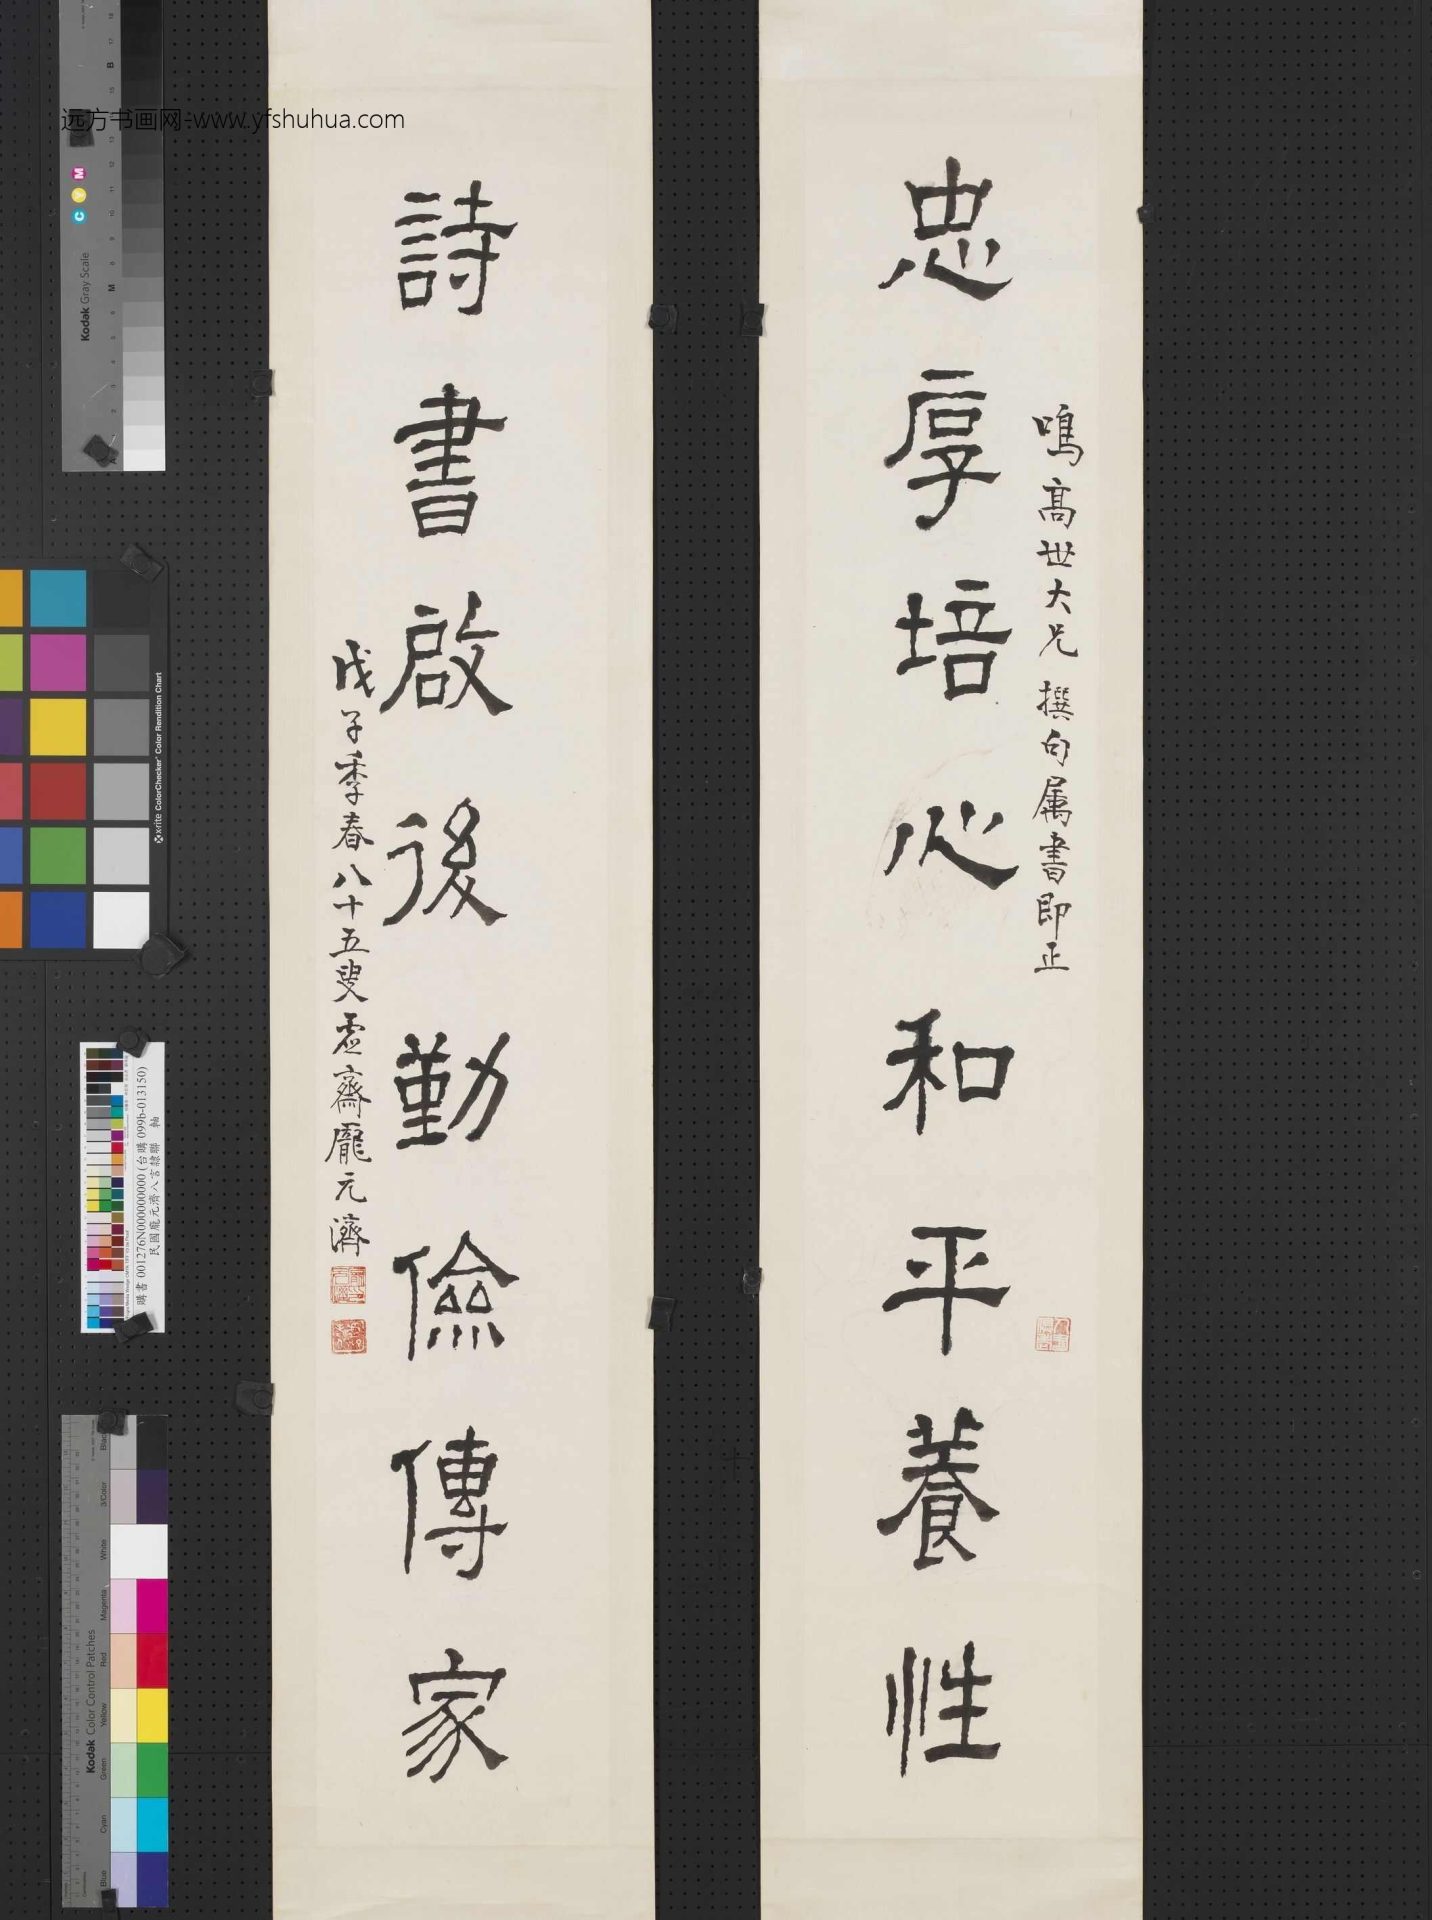 远方书画网-www.yfshuhua.com
忠厚培心和平養性
鳴高世大兄 撰句属書即正
詩書啟後勤儉傳家
戊子季春八十五叟虛齋龐元濟
Kodak Gray Scale
C Y M
x-rite ColorChecker Color Rendition Chart
購書 001276N000000000 (台購 099b-013150)
民國龐元濟八言隸聯 軸
Kodak Color Control Patches
Blue
Cyan
Green
Yellow
Red
Magenta
White
3/Color
Black